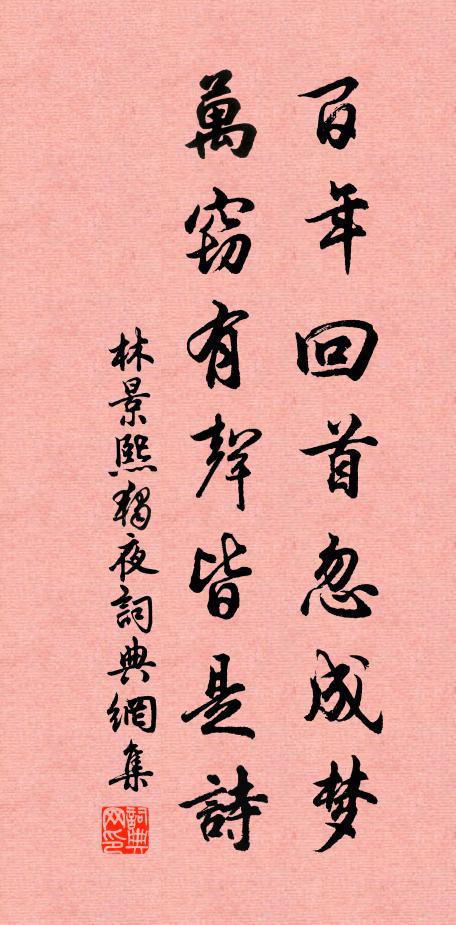 百年回首忽成梦
萬窍有聲皆是詩
林景熙獨夜詞典網集
詞典网印